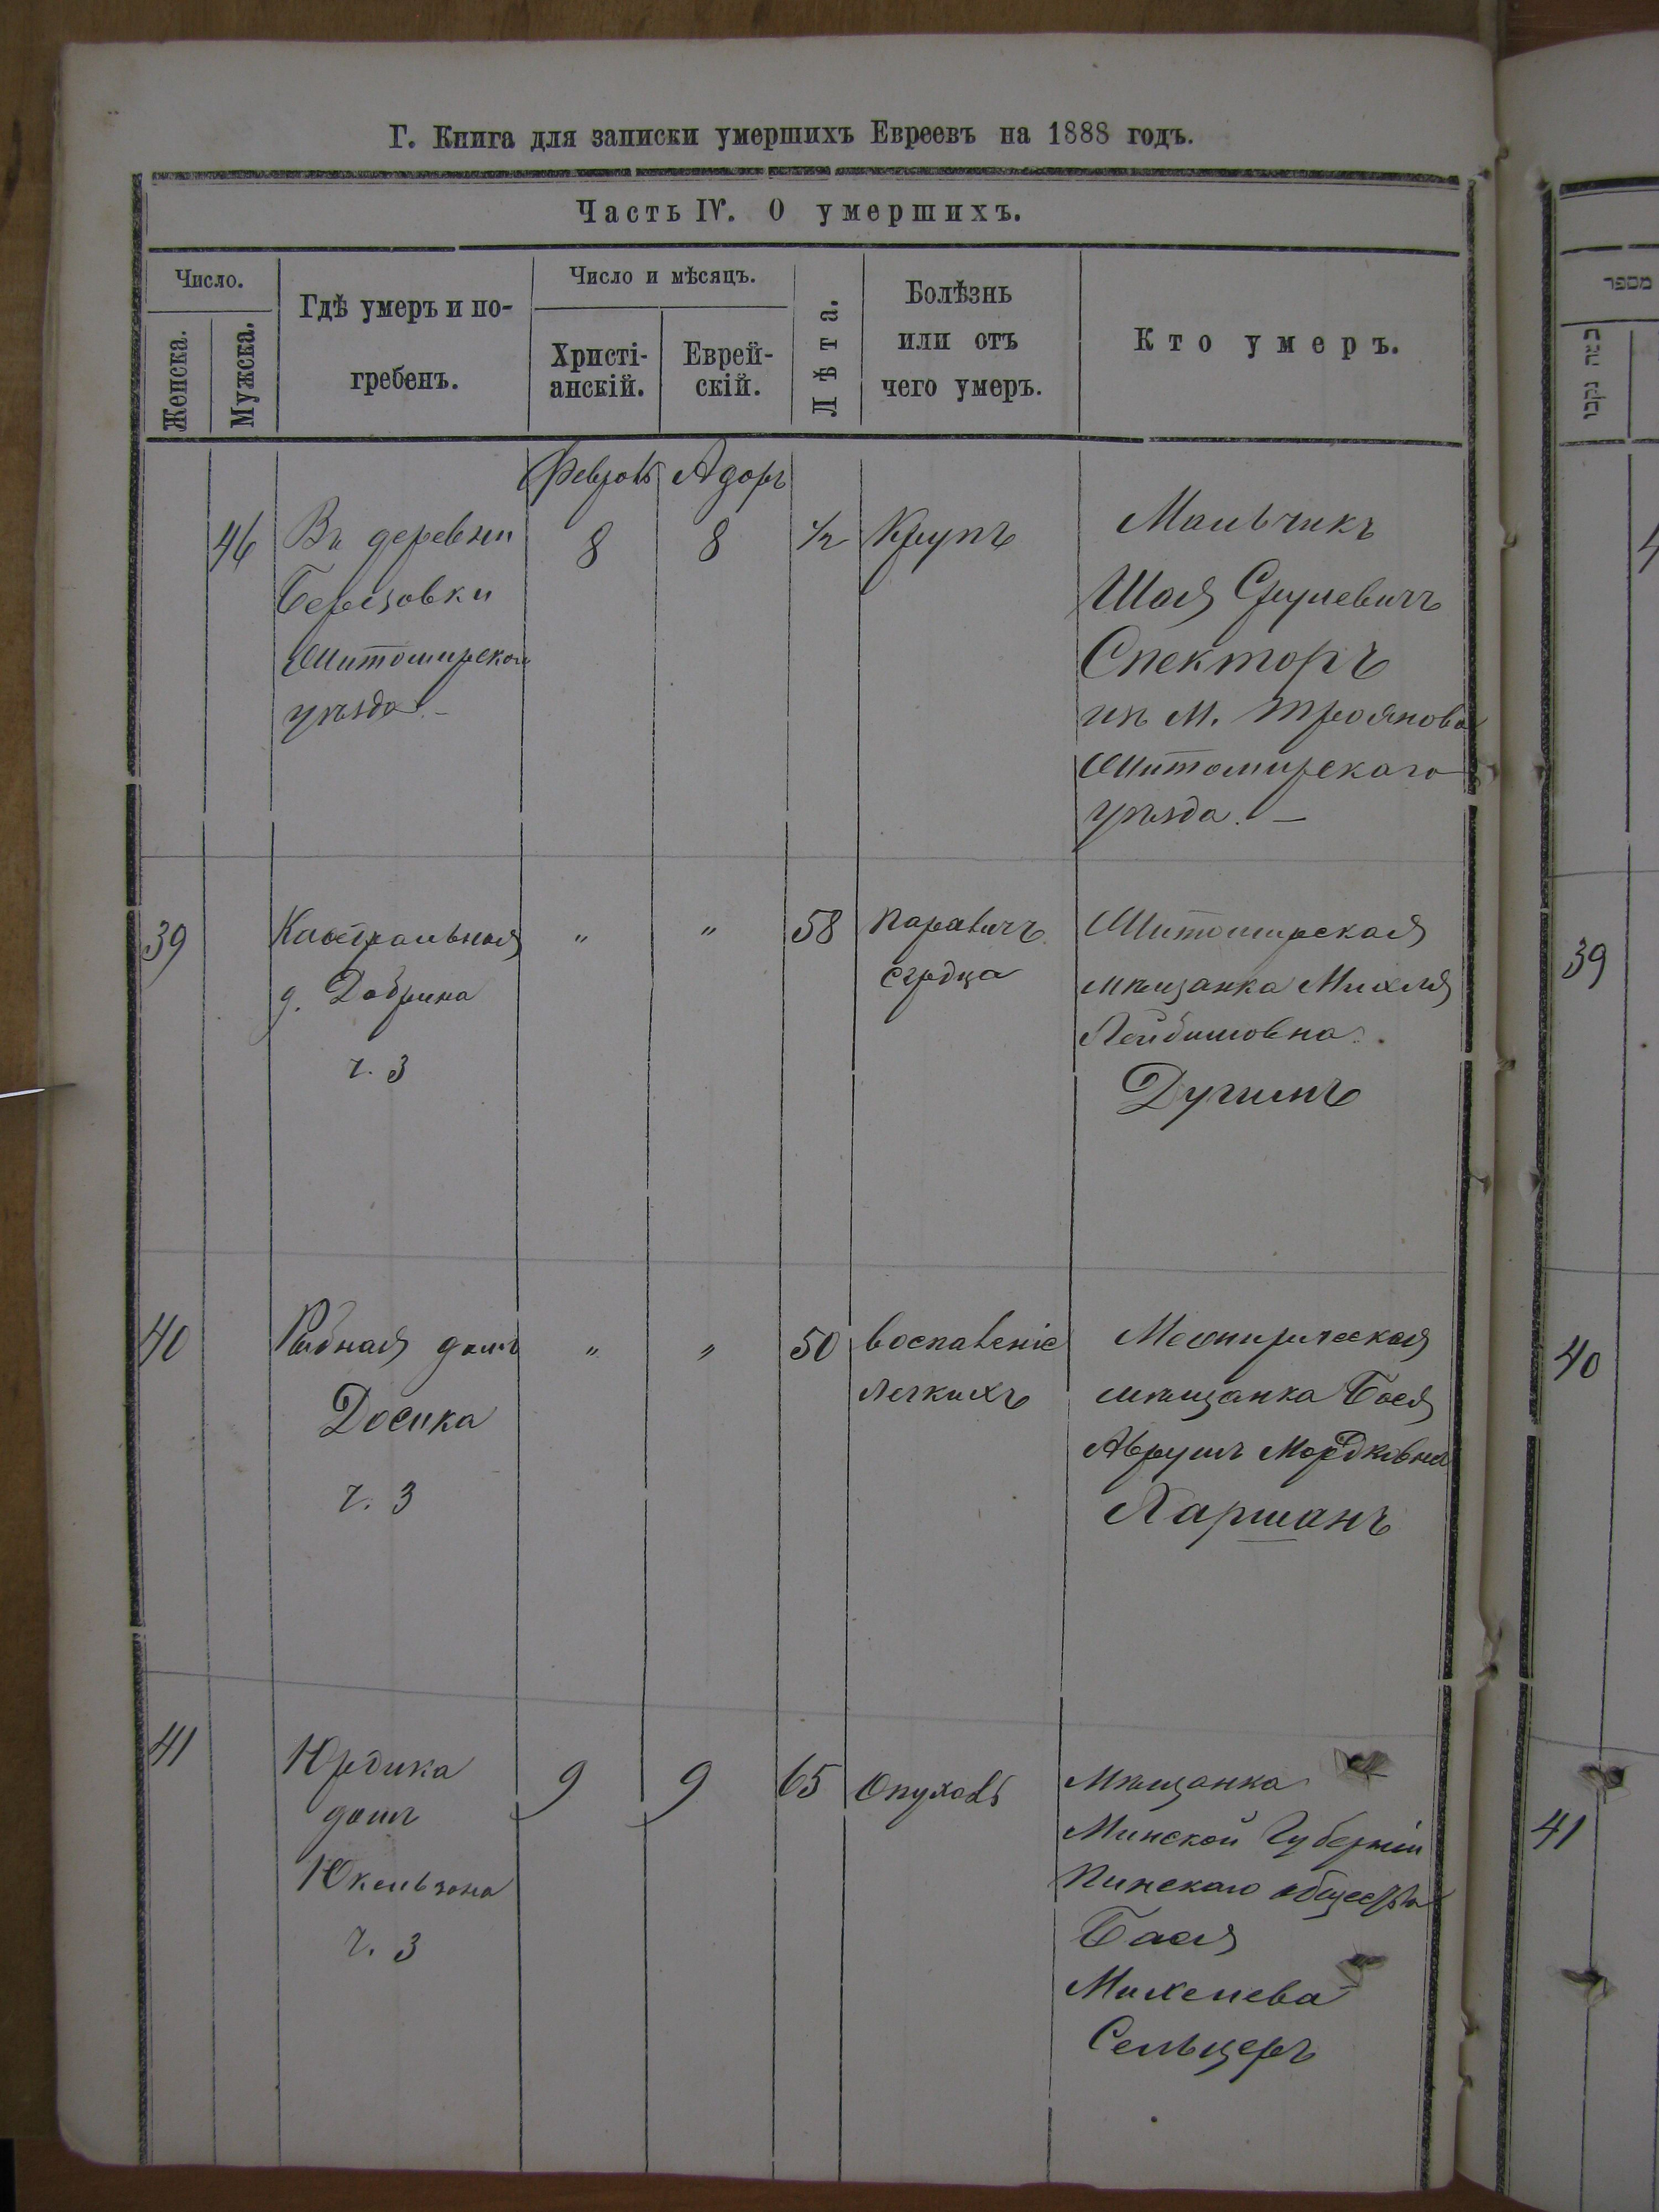 Г. Книга для записки умершихъ Евреевъ на 1888 годъ.
Часть IV. О умершихъ.
Число.
Женска.
Мужска.
Гдѣ умеръ и по-
гребенъ.
Число и мѣсяцъ.
Христі-
анскій.
Еврей-
скій.
Лѣта.
Болѣзнь
или отъ
чего умеръ.
Кто умеръ.
מספר
Февраль Адоръ
46
Въ деревни
Березовки
Житомирскаго
уѣзда. –
8
8
1/2
Крупъ
Мальчикъ
Шая Срулевичъ
Спекторъ
изъ м. Троянова
Житомирскаго
уѣзда. –
39
Кафедральная
д. Добрина
ч. 3
"
"
58
Параличъ
сердца
Житомирская
мѣщанка Михля
Лейбишовна
Дугимъ
39
40
Рыбная домъ
Досика
ч. 3
"
"
50
воспаленіе
легкихъ
мѣщанка Бася
Аврумъ Мордковна
Харшанъ
40
41
Юрдика
домъ
Юкельзона
ч. 3
9
9
65
Опухоль
Мѣщанка
Минской Губерніи
Пинскаго общества
Бася
Михелева
Сельцеръ
41